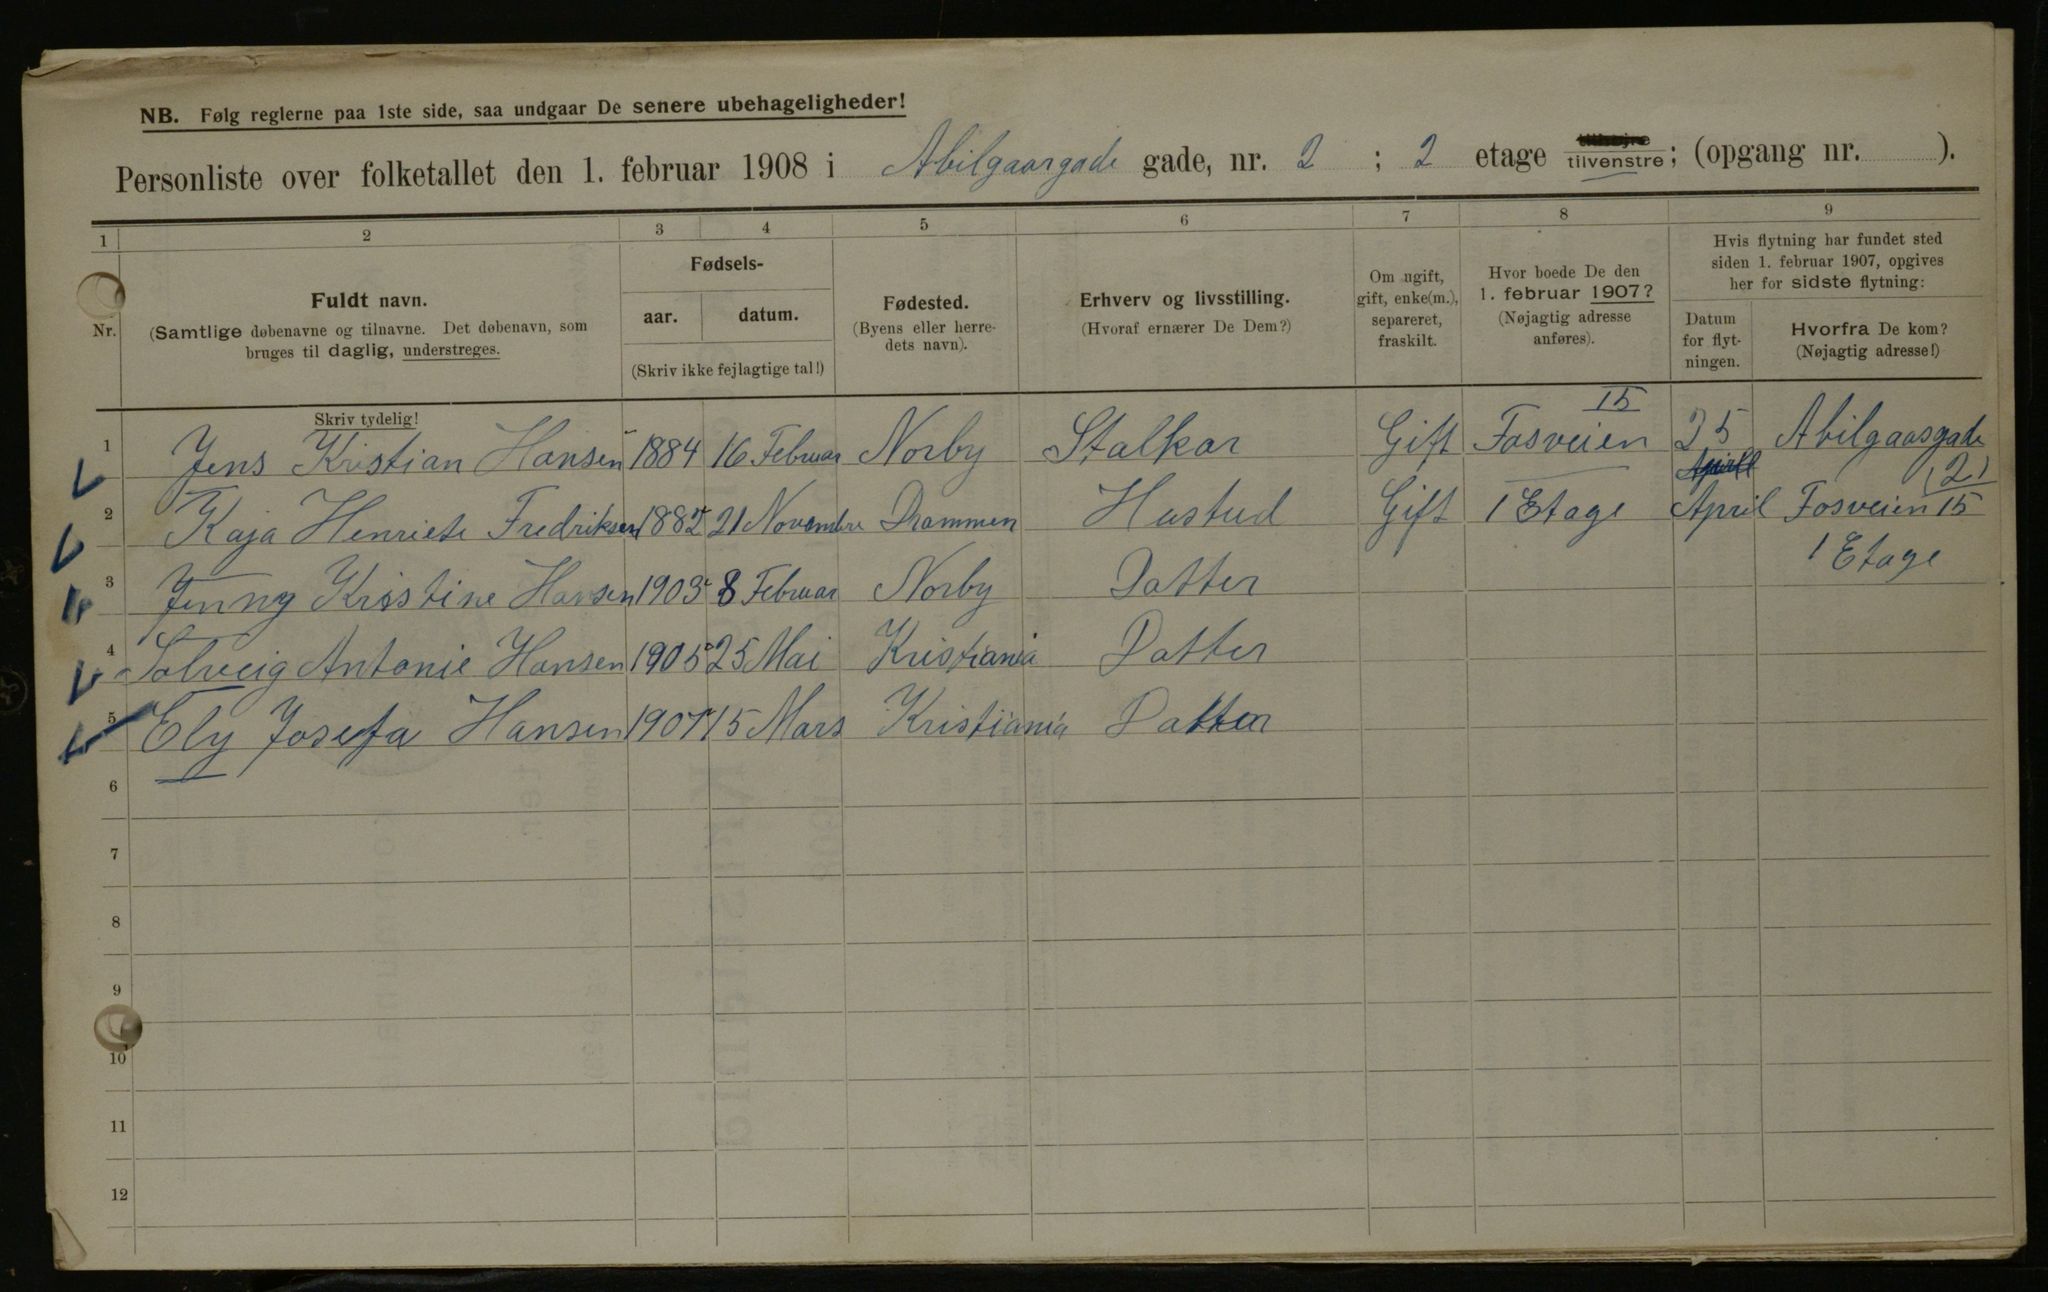 NB. Følg reglerne paa 1ste side, saa undgaar De senere ubehageligheder!
Personliste over folketallet den 1. februar 1908 i Abilgaargade gade, nr. 2 ; 2 etage tilvenstre; (opgang nr. ).
1 2 3 4 5 6 7 8 9
Nr. Fuldt navn. (Samtlige døbenavne og tilnavne. Det døbenavn, som bruges til daglig, understreges. Skriv tydelig!
Fødsels- aar. datum. (Skriv ikke fejlagtige tal!)
Fødested. (Byens eller herredets navn).
Erhverv og livsstilling. (Hvoraf ernærer De Dem?)
Om ugift, gift, enke(m.), separeret, fraskilt.
Hvor boede De den 1. februar 1907? (Nøjagtig adresse anføres).
Hvis flytning har fundet sted siden 1. februar 1907, opgives her for sidste flytning:
Datum for flytningen.
Hvorfra De kom? (Nøjagtig adresse!)
1 Jens Kristian Hansen 1884 16 Februar Norby Stalkar Gift Fosveien 15 25 Abilgaasgade (2)
2 Kaja Henriete Fredriksen 1882 21 Novembre Drammen Hustud Gift 1 Etage April Fosveien 15
1 Etage
3 Jenny Kristine Hansen 1903 8 Februar Norby Datter
4 Solveig Antonie Hansen 1905 25 Mai Kristiania Datter
5 Ely Josefa Hansen 1907 15 Mars Kristiania Datter
6
7
8
9
10
11
12